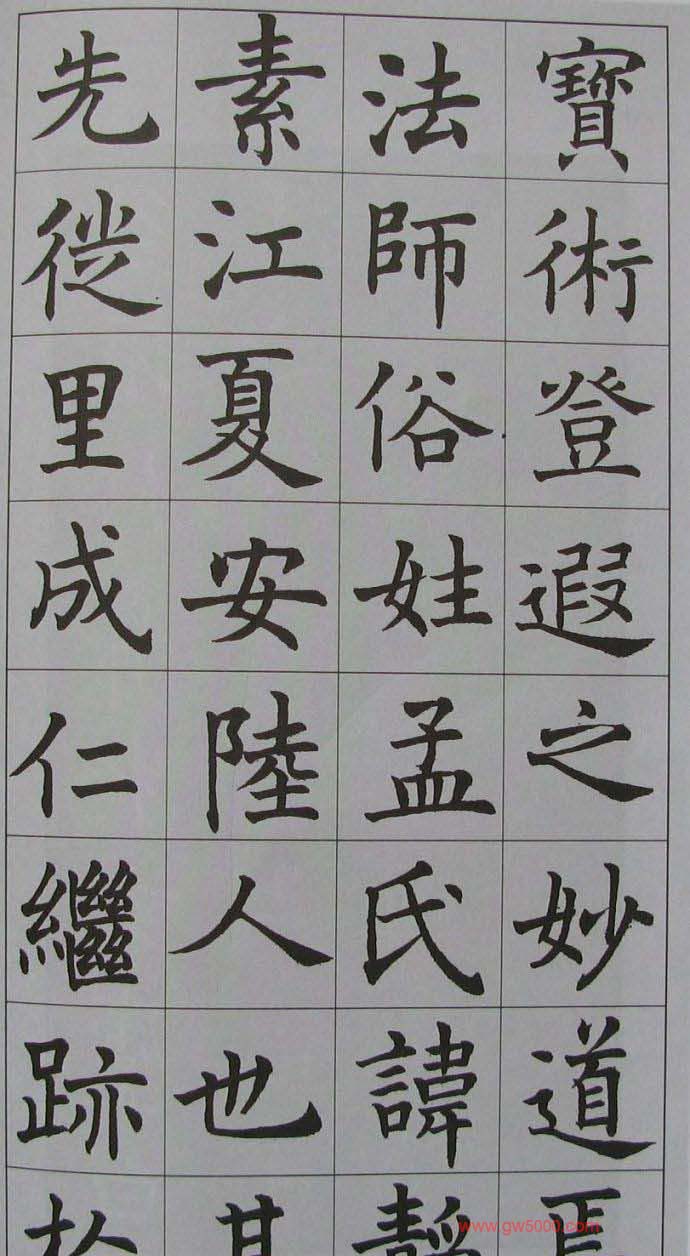 寶術登遐之妙道焉
法師俗姓孟氏諱靜
素江夏安陸人也其
先徙里成仁繼跡於
www.gw5000.com